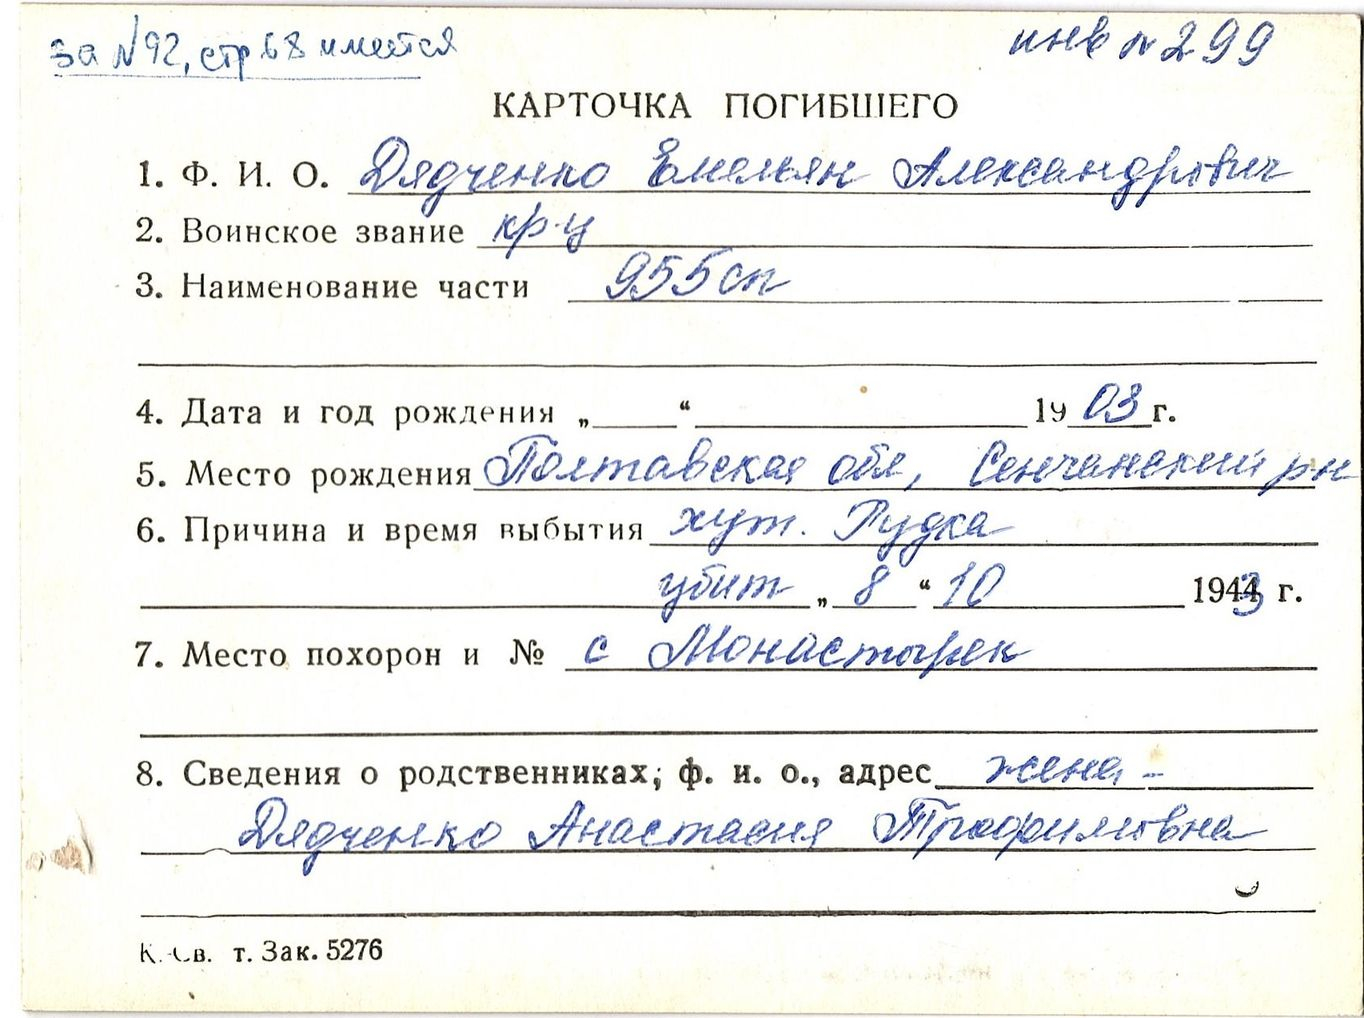 за № 92, стр 68 имеется
инв № 299
КАРТОЧКА ПОГИБШЕГО
1. Ф. И. О. Дядченко Емельян Александрович
2. Воинское звание кр-ц
3. Наименование части 955 сп
4. Дата и год рождения „ “ 1903 г.
5. Место рождения Полтавская обл, Сенчанский рн
6. Причина и время выбытия хут. Рудка
убит „ 8 “ 10 1943 г.
7. Место похорон и № с Монастырек
8. Сведения о родственниках; ф. и. о., адрес жена -
Дядченко Анастасия Трофимовна
т. Зак. 5276